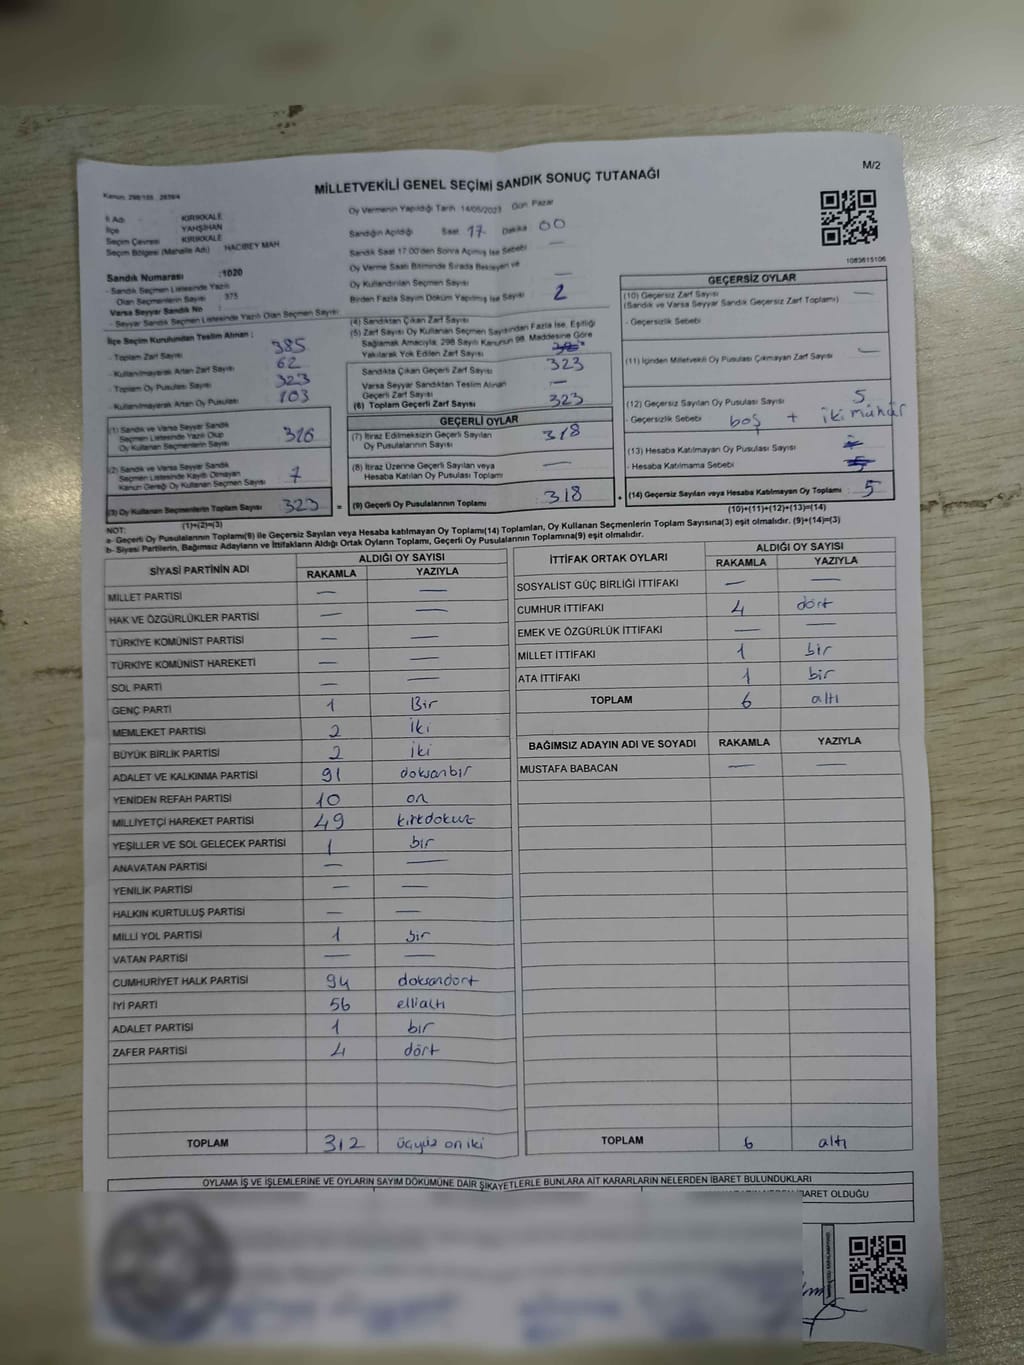 M/2
MİLLETVEKİLİ GENEL SEÇİMİ SANDIK SONUÇ TUTANAĞI
Kanun: 298/105
İl Adı : KIRIKKALE
İlçe : YAHŞİHAN
Seçim Çevresi : KIRIKKALE
Seçim Bölgesi (Mahalle Adı) : HACIBEY MAH
Oy Vermenin Yapıldığı Tarih :14/05/2023 Gün: Pazar
Sandığın Açıldığı Saat 17 Dakika 00
Sandık Saat 17.00'den Sonra Açılmış İse Sebebi —
Oy Verme Saati Bitiminde Sırada Bekleyen ve
Oy Kullandırılan Seçmen Sayısı —
Birden Fazla Sayım Döküm Yapılmış İse Sayısı 2
1083615106
Sandık Numarası :1020
- Sandık Seçmen Listesinde Yazılı
Olan Seçmenlerin Sayısı : 375
Varsa Seyyar Sandık No :
- Seyyar Sandık Seçmen Listesinde Yazılı Olan Seçmen Sayısı :
İlçe Seçim Kurulundan Teslim Alınan :
- Toplam Zarf Sayısı 385
- Kullanılmayarak Artan Zarf Sayısı 62
- Toplam Oy Pusulası Sayısı 323
- Kullanılmayarak Artan Oy Pusulası 103
(1) Sandık ve Varsa Seyyar Sandık
Seçmen Listesinde Yazılı Olup
Oy Kullanan Seçmenlerin Sayısı 316
(2) Sandık ve Varsa Seyyar Sandık
Seçmen Listesinde Kayıtlı Olmayan
Kanun Gereği Oy Kullanan Seçmen Sayısı 7
(3) Oy Kullanan Seçmenlerin Toplam Sayısı 323
(1)+(2)=(3)
(4) Sandıktan Çıkan Zarf Sayısı
(5) Zarf Sayısı Oy Kullanan Seçmen Sayısından Fazla İse, Eşitliği
Sağlamak Amacıyla; 298 Sayılı Kanunun 98. Maddesine Göre
Yakılarak Yok Edilen Zarf Sayısı
Sandıkta Çıkan Geçerli Zarf Sayısı 323
Varsa Seyyar Sandıktan Teslim Alınan
Geçerli Zarf Sayısı —
(6) Toplam Geçerli Zarf Sayısı 323
GEÇERLİ OYLAR
(7) İtiraz Edilmeksizin Geçerli Sayılan
Oy Pusulalarının Sayısı 318
(8) İtiraz Üzerine Geçerli Sayılan veya
Hesaba Katılan Oy Pusulası Toplamı —
= (9) Geçerli Oy Pusulalarının Toplamı 318
GEÇERSİZ OYLAR
(10) Geçersiz Zarf Sayısı —
(Sandık ve Varsa Seyyar Sandık Geçersiz Zarf Toplamı)
- Geçersizlik Sebebi
(11) İçinden Milletvekili Oy Pusulası Çıkmayan Zarf Sayısı —
(12) Geçersiz Sayılan Oy Pusulası Sayısı 5
- Geçersizlik Sebebi boş + iki mühür
(13) Hesaba Katılmayan Oy Pusulası Sayısı
- Hesaba Katılmama Sebebi
+ (14) Geçersiz Sayılan veya Hesaba Katılmayan Oy Toplamı 5
(10)+(11)+(12)+(13)=(14)
NOT:
a- Geçerli Oy Pusulalarının Toplamı(9) ile Geçersiz Sayılan veya Hesaba katılmayan Oy Toplamı(14) Toplamları, Oy Kullanan Seçmenlerin Toplam Sayısına(3) eşit olmalıdır. (9)+(14)=(3)
b- Siyasi Partilerin, Bağımsız Adayların ve İttifakların Aldığı Ortak Oyların Toplamı, Geçerli Oy Pusulalarının Toplamına(9) eşit olmalıdır.
SİYASİ PARTİNİN ADI ALDIĞI OY SAYISI
RAKAMLA YAZIYLA
MİLLET PARTİSI — —
HAK VE ÖZGÜRLÜKLER PARTİSİ — —
TÜRKİYE KOMÜNİST PARTİSİ — —
TÜRKİYE KOMÜNİST HAREKETİ — —
SOL PARTİ — —
GENÇ PARTİ 1 Bir
MEMLEKET PARTİSİ 2 iki
BÜYÜK BİRLİK PARTİSİ 2 iki
ADALET VE KALKINMA PARTİSİ 91 doksanbir
YENİDEN REFAH PARTİSİ 10 on
MİLLİYETÇİ HAREKET PARTİSİ 49 kırkdokuz
YEŞİLLER VE SOL GELECEK PARTİSİ 1 bir
ANAVATAN PARTİSİ — —
YENİLİK PARTİSİ — —
HALKIN KURTULUŞ PARTİSİ — —
MİLLİ YOL PARTİSİ 1 bir
VATAN PARTİSİ — —
CUMHURİYET HALK PARTİSİ 94 doksandört
İYİ PARTİ 56 ellialtı
ADALET PARTİSİ 1 bir
ZAFER PARTİSİ 4 dört
TOPLAM 312 üçyüz on iki
İTTİFAK ORTAK OYLARI ALDIĞI OY SAYISI
RAKAMLA YAZIYLA
SOSYALİST GÜÇ BİRLİĞİ İTTİFAKI — —
CUMHUR İTTİFAKI 4 dört
EMEK VE ÖZGÜRLÜK İTTİFAKI — —
MİLLET İTTİFAKI 1 bir
ATA İTTİFAKI 1 bir
TOPLAM 6 altı
BAĞIMSIZ ADAYIN ADI VE SOYADI RAKAMLA YAZIYLA
MUSTAFA BABACAN — —
TOPLAM 6 altı
OYLAMA İŞ VE İŞLEMLERİNE VE OYLARIN SAYIM DÖKÜMÜNE DAİR ŞİKAYETLERLE BUNLARA AİT KARARLARIN NELERDEN İBARET BULUNDUKLARI
İBARET OLDUĞU